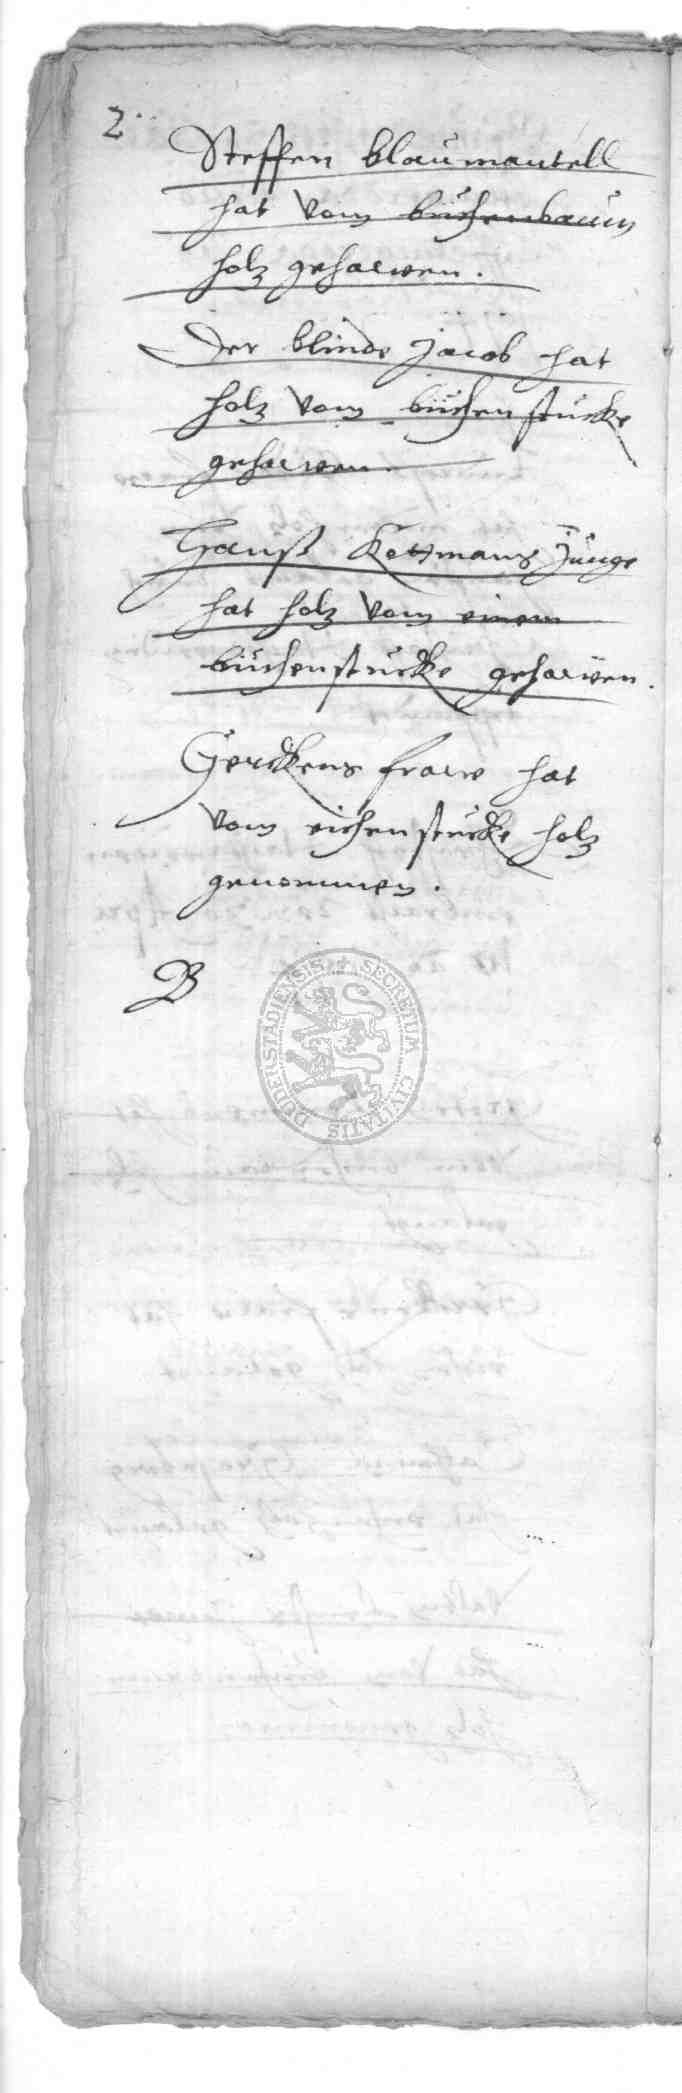 2
Steffen blaumantell
hat vom büchenbaum
holz gehawen.
Der blinde Jacob hat
holz vom büchenstücke
gehawen
Hanß Kottmans Junge
hat holz vom einem
büchenstücke gehawen.
Gerckens fraw hat
vom eichenstücke holz
genommen.
B
SECRETUM CIVITATIS DUDERSTADIENSIS